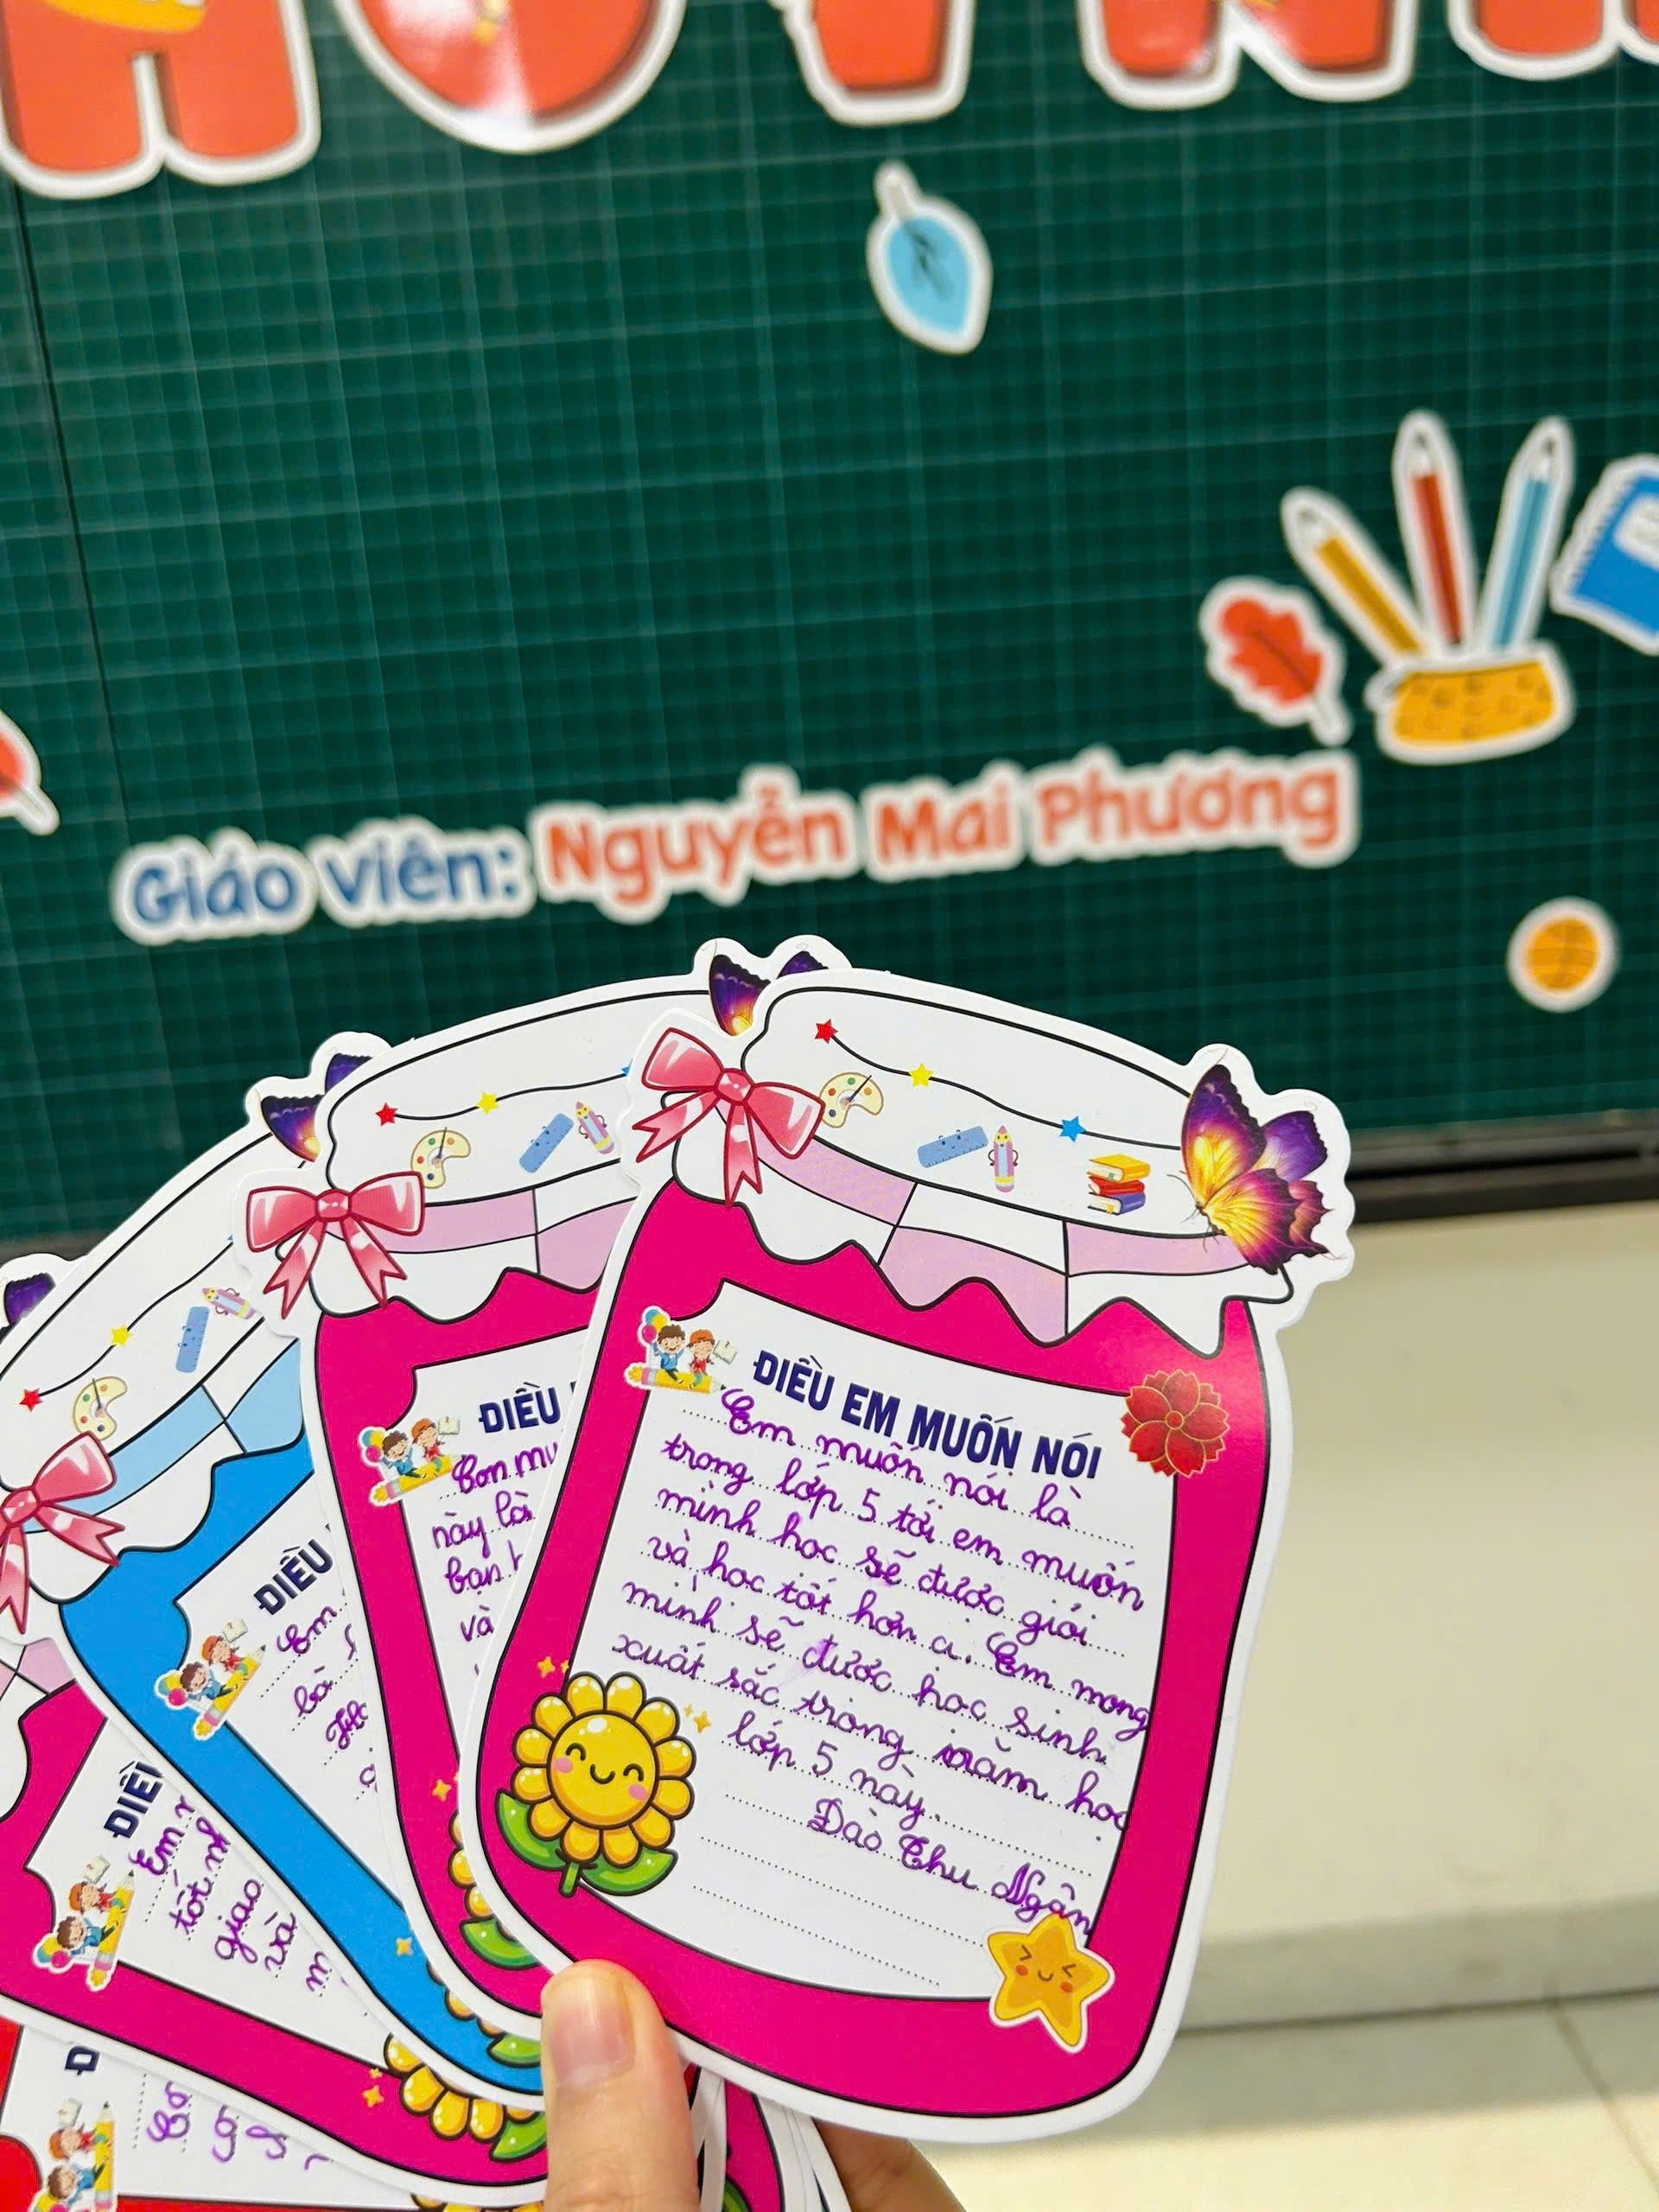 Giáo viên: Nguyễn Mai Phương
ĐIỀU EM MUỐN NÓI
Em muốn nói là
trong lớp 5 tới em muốn
mình học sẽ được giỏi
và học tốt hơn ạ. Em mong
mình sẽ được học sinh
xuất sắc trong năm học
lớp 5 này.
Đào Thu Ngân
ĐIỀU
Con mu
này là
bạn
và
ĐIỀU
Em
là
ĐIỀ
Em
tốt
giao
và
Đ